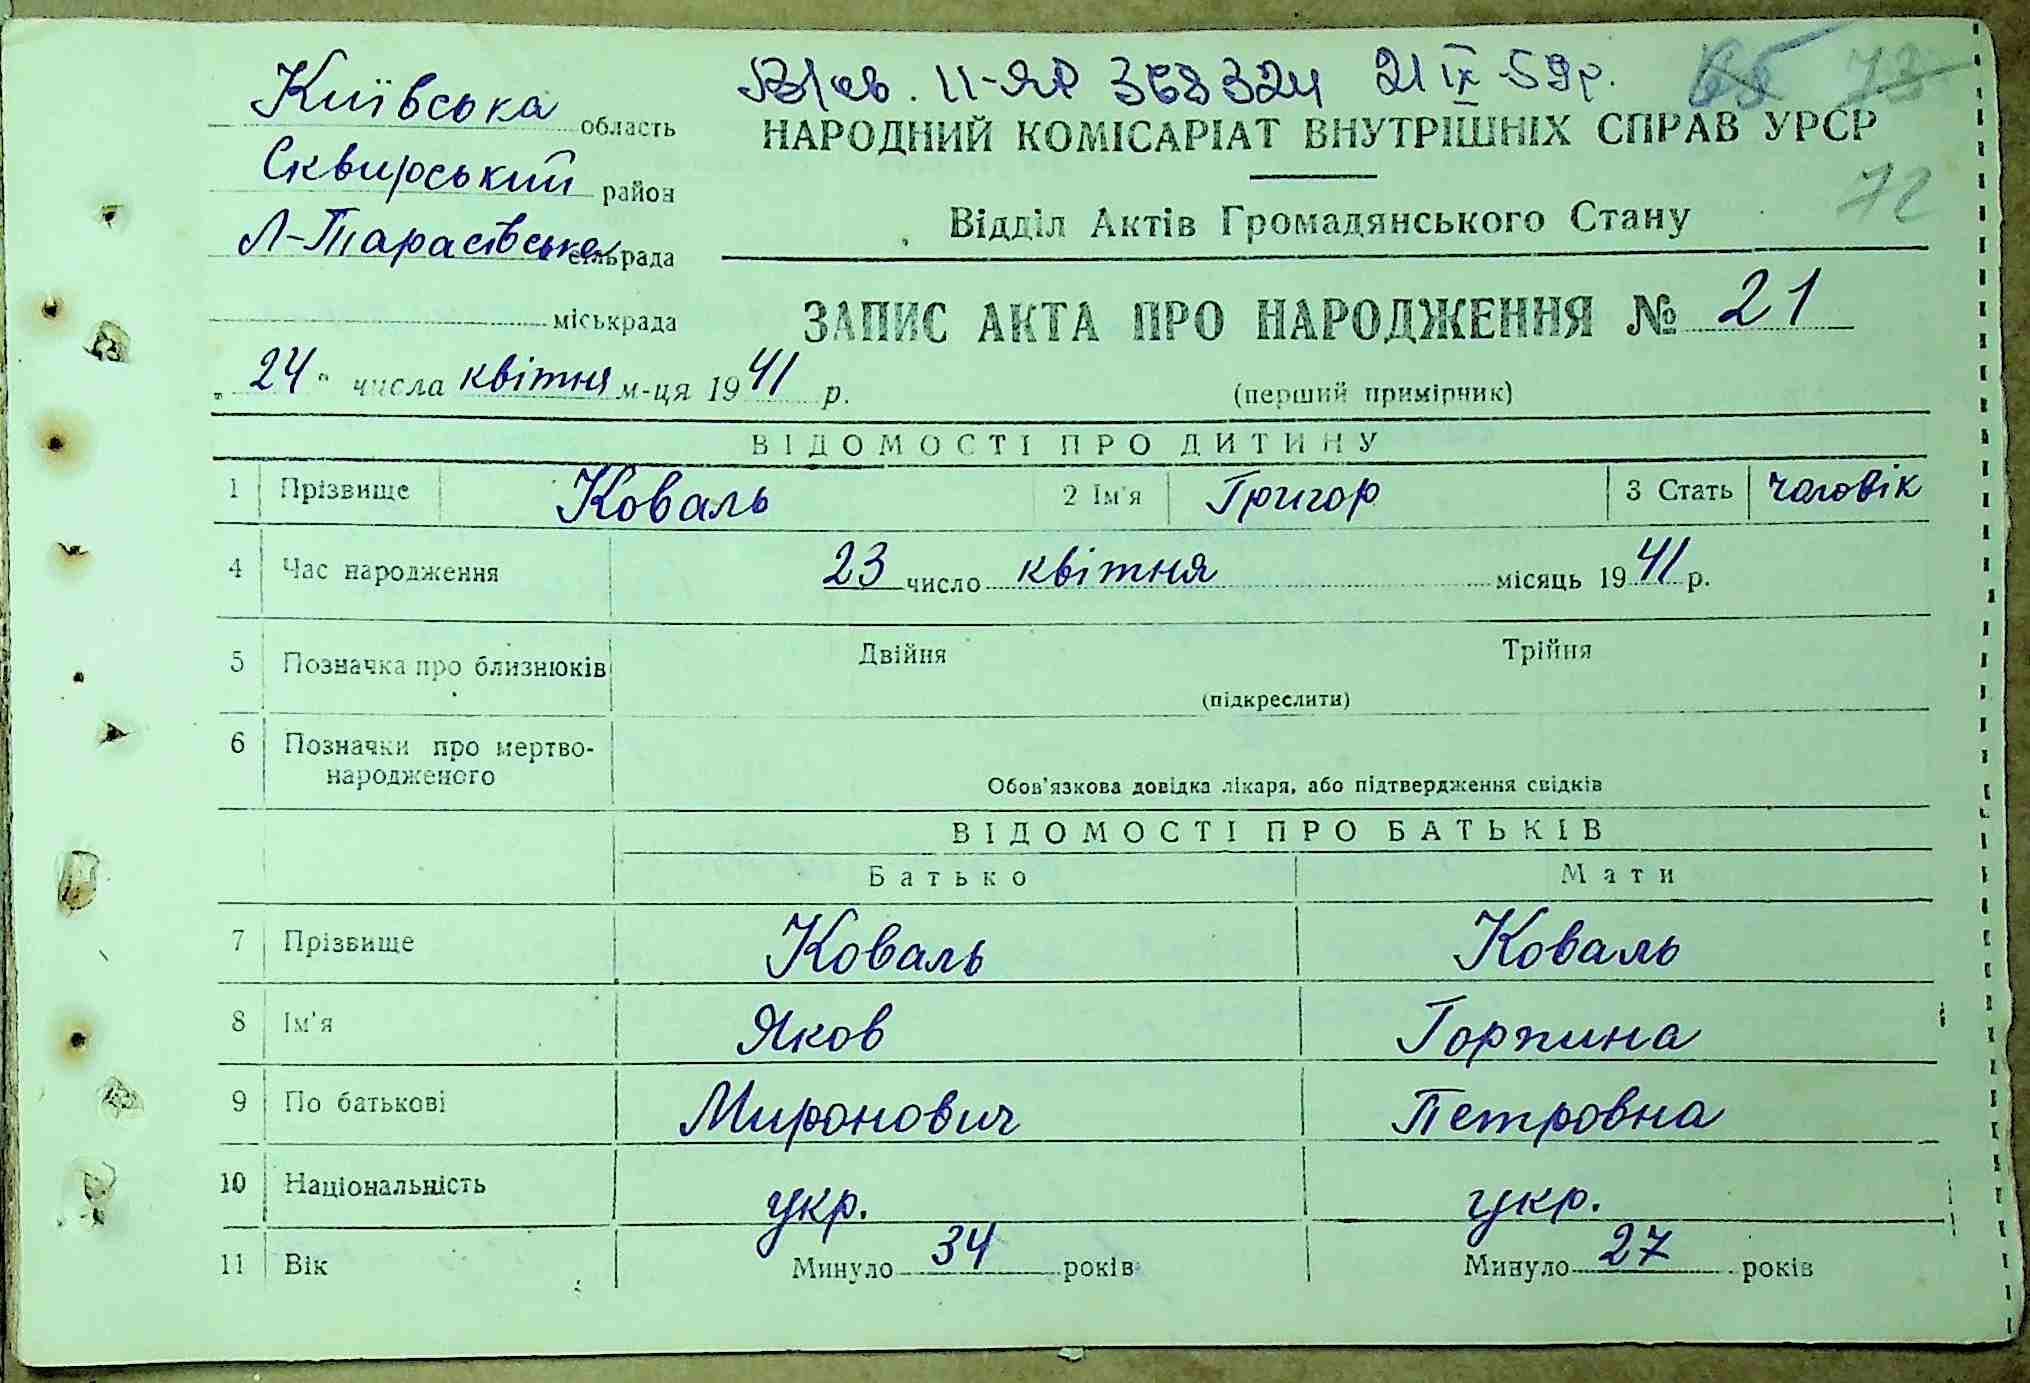 Київська область
Сквирський район
Л-Тарасівська сільрада
міськрада
„24“ числа квітня м-ця 1941 р.
II-ЯР 368324 21 IX-59р.
65 73
НАРОДНИЙ КОМІСАРІАТ ВНУТРІШНІХ СПРАВ УРСР
72
Відділ Актів Громадянського Стану
ЗАПИС АКТА ПРО НАРОДЖЕННЯ № 21
(перший примірник)
ВІДОМОСТІ ПРО ДИТИНУ
1 Прізвище Коваль 2 Ім'я Григор 3 Стать чоловік
4 Час народження 23 число квітня місяць 1941 р.
5 Позначка про близнюків Двійня Трійня
(підкреслити)
6 Позначки про мертво-
народженого
Обов'язкова довідка лікаря, або підтвердження свідків
ВІДОМОСТІ ПРО БАТЬКІВ
Батько Мати
7 Прізвище Коваль Коваль
8 Ім'я Яков Горпина
9 По батькові Миронович Петровна
10 Національність укр. укр.
11 Вік Минуло 34 років Минуло 27 років